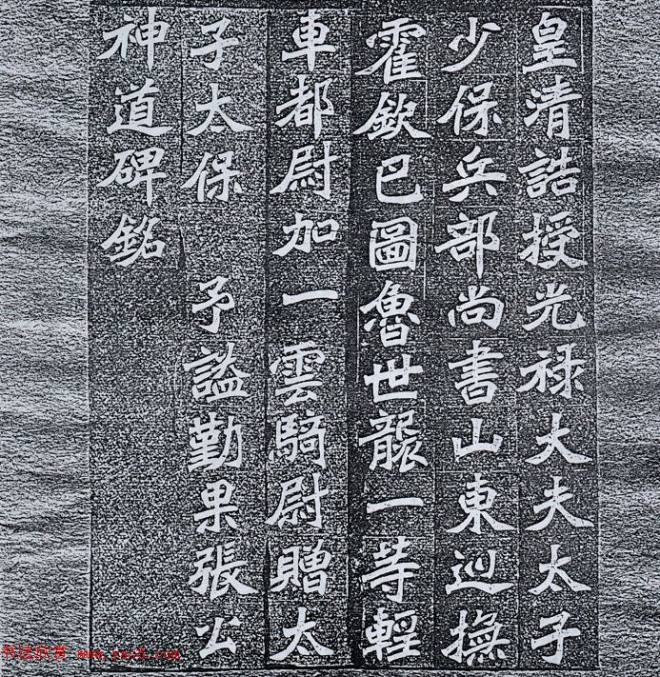 皇清誥授光禄大夫太子
少保兵部尚書山東巡撫
霍欽巴圖魯世襲一等輕
車都尉加一雲騎尉贈太
子太保 予謚勤果張公
神道碑銘
书法欣赏 www.yac8.com